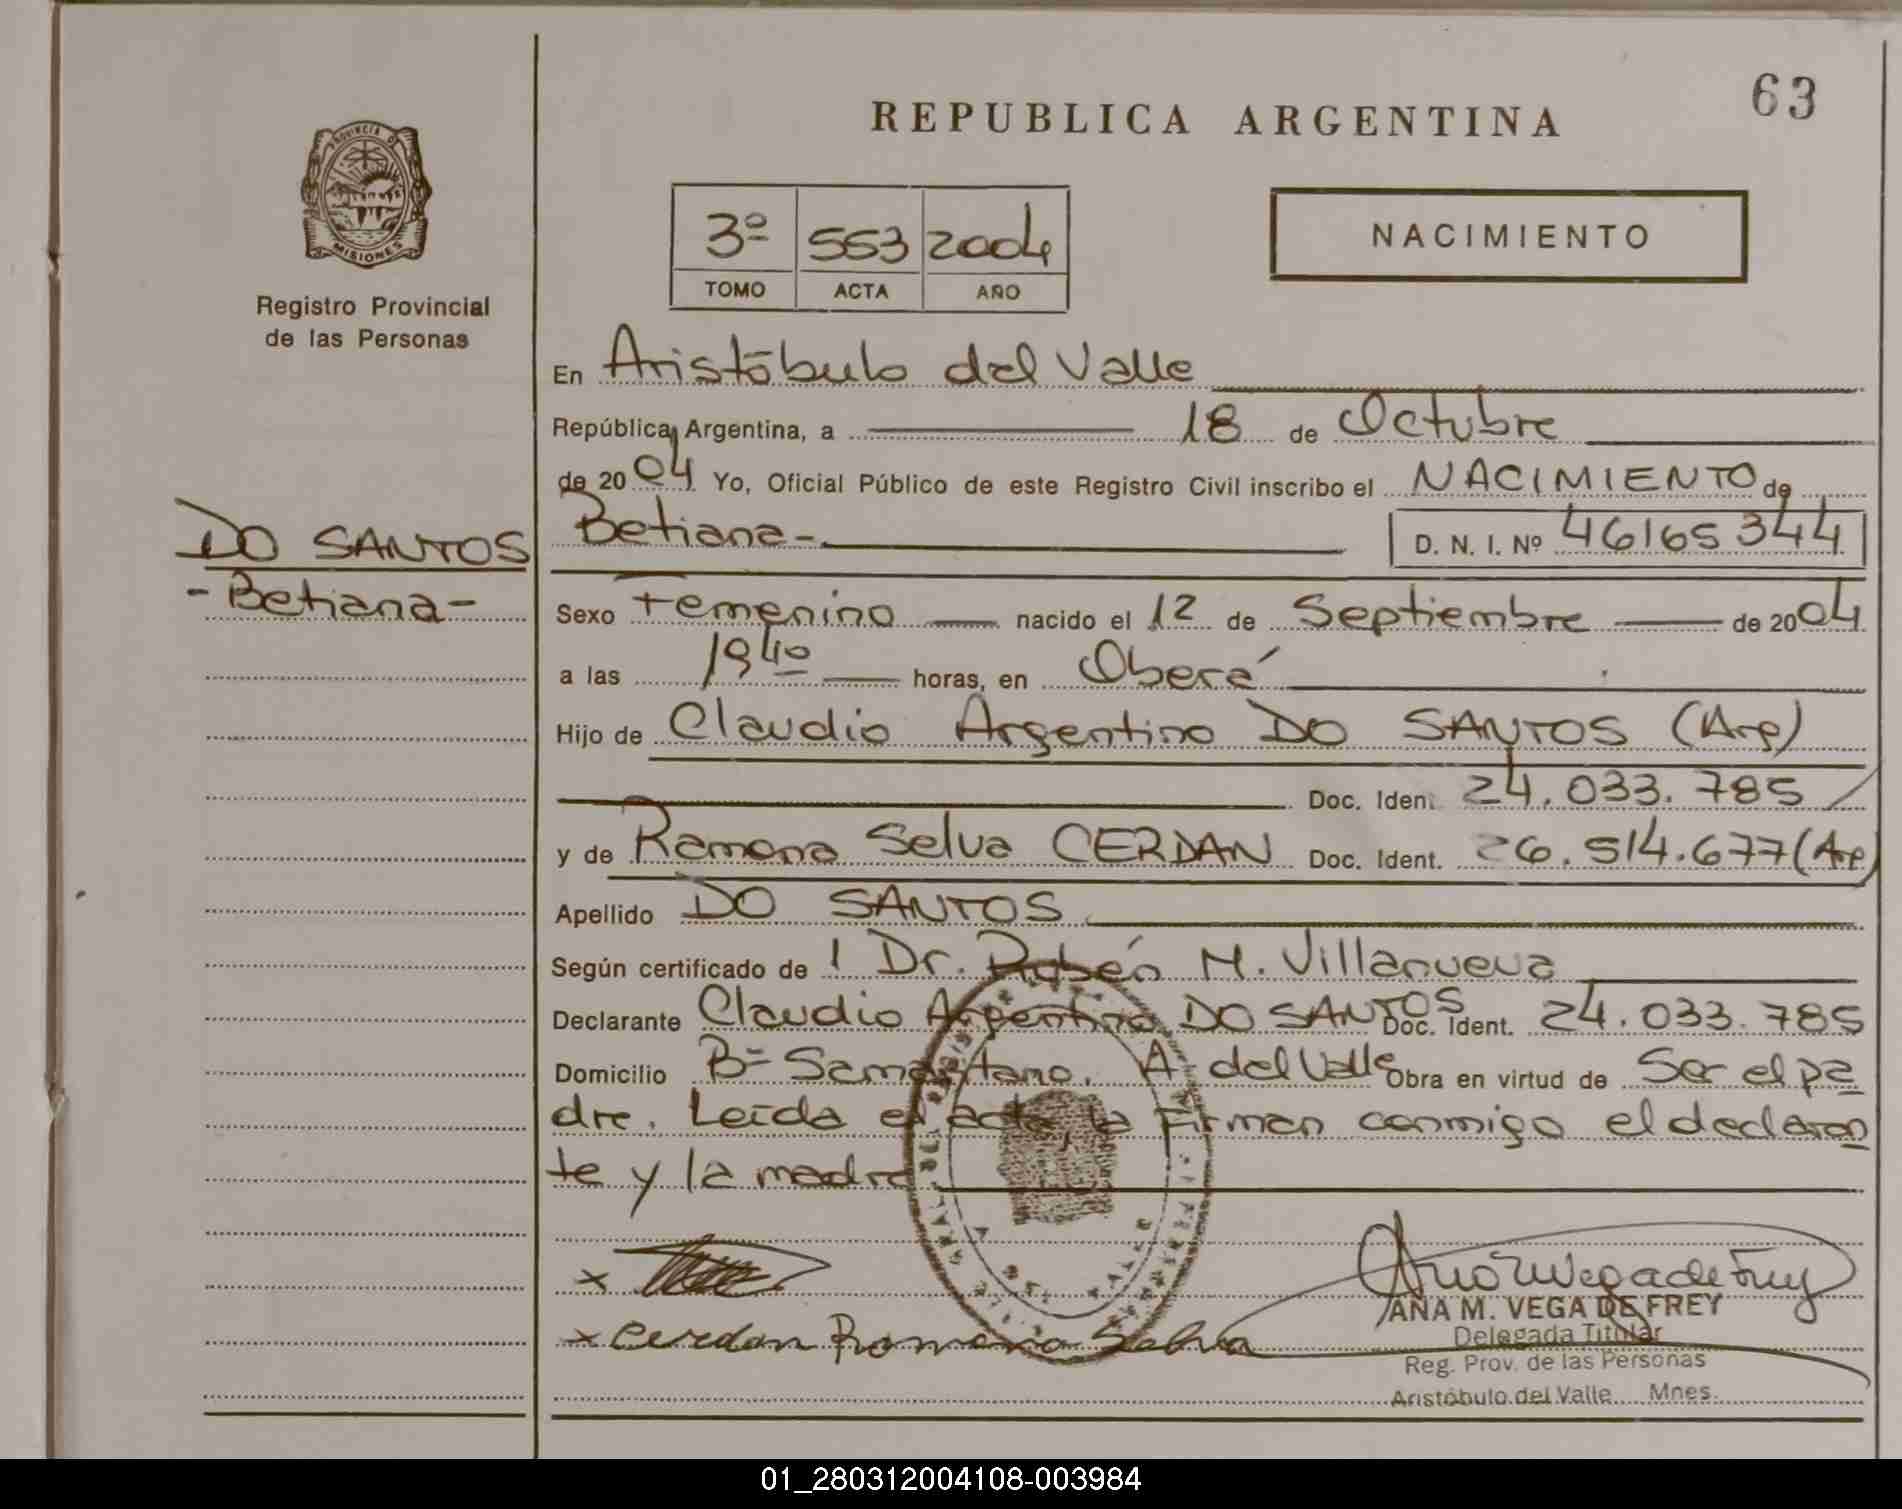 63
REPUBLICA ARGENTINA
PROVINCIA DE
MISIONES
Registro Provincial
de las Personas
3º 553 2004
TOMO ACTA AÑO
NACIMIENTO
En Aristóbulo del Valle
República Argentina, a 18 de Octubre
de 2004 Yo, Oficial Público de este Registro Civil inscribo el NACIMIENTO de
DO SANTOS
- Betiana -
Betiana-. D. N. I. Nº 46165344
Sexo Femenino nacido el 12 de Septiembre de 2004
a las 19 40 horas, en Oberá
Hijo de Claudio Argentino DO SANTOS (Arg)
Doc. Iden. 24.033.785
y de Ramona Selva CERDAN Doc. Ident. 26.514.677 (Arg)
Apellido DO SANTOS
Según certificado de 1 Dr. Rubén M. Villanueva
Declarante Claudio Argentino DO SANTOS Doc. Ident. 24.033.785
Domicilio Bº Samaritano. A. del Valle Obra en virtud de Ser el pa
dre. Leída el acta, la Firman conmigo el declaran
te y la madre
x
x Cerdan Romona Selva
ANA M. VEGA DE FREY
Delegada Titular
Reg. Prov. de las Personas
Aristóbulo del Valle Mnes.
01_280312004108-003984